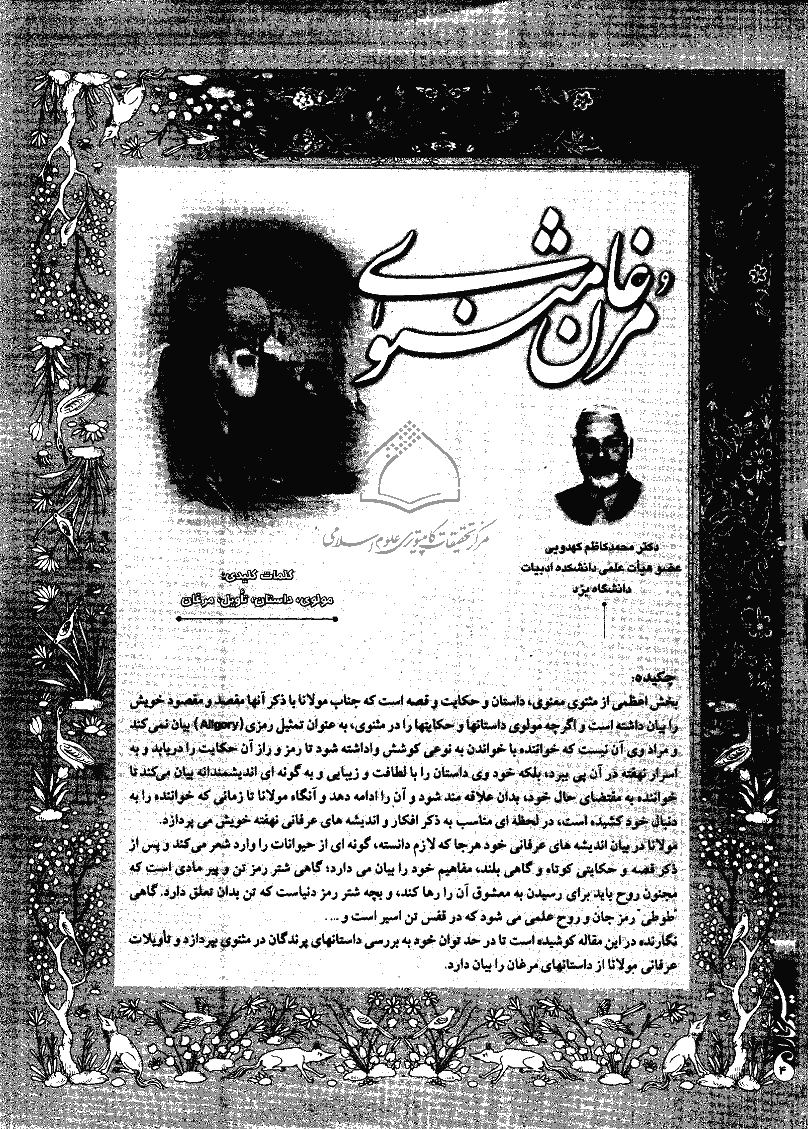 مرغان مثنوی
دکتر محمدکاظم کهدویی
عضو هیأت علمی دانشکده ادبیات
دانشگاه یزد
مرکز تحقیقات کامپیوتری علوم اسلامی
کلمات کلیدی:
مولوی، داستان، تأویل، مرغان
چکیده:
بخش اعظمی از مثنوی معنوی، داستان و حکایت و قصه است که جناب مولانا با ذکر آنها مقصد و مقصود خویش
را بیان داشته است و اگرچه مولوی داستانها و حکایتها را در مثنوی، به عنوان تمثیل رمزی (Allgory) بیان نمی کند
و مراد وی آن نیست که خواننده با خواندن به نوعی کوشش واداشته شود تا رمز و راز آن حکایت را دریابد و به
اسرار نهفته در آن پی ببرد، بلکه خود وی داستان را با لطافت و زیبایی و به گونه ای اندیشمندانه بیان می‌کند تا
خواننده به مقتضای حال خود، بدان علاقه مند شود و آن را ادامه دهد و آنگاه مولانا تا زمانی که خواننده را به
دنبال خود کشیده است، در لحظه ای مناسب به ذکر افکار و اندیشه های عرفانی نهفته خویش می پردازد.
مولانا در بیان اندیشه های عرفانی خود هرجا که لازم دانسته، گونه ای از حیوانات را وارد شعر می‌کند و پس از
ذکر قصه و حکایتی کوتاه و گاهی بلند، مفاهیم خود را بیان می دارد؛ گاهی شتر رمز تن و پیر مادی است که
مجنون روح باید برای رسیدن به معشوق آن را رها کند، و بچه شتر رمز دنیاست که تن بدان تعلق دارد. گاهی
"طوطی" رمز جان و روح علمی می شود که در قفس تن اسیر است و ....
نگارنده در این مقاله کوشیده است تا در حد توان خود به بررسی داستانهای پرندگان در مثنوی بپردازد و تأویلات
عرفانی مولانا از داستانهای مرغان را بیان دارد.
۴